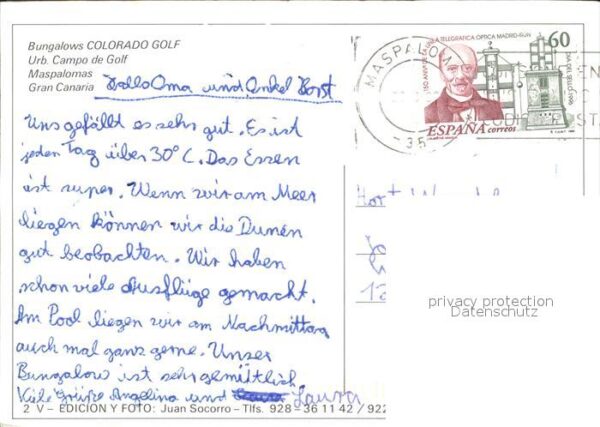 Bungalows COLORADO GOLF
Urb. Campo de Golf
Maspalomas
Gran Canaria
Hallo Oma und Onkel Horst
Uns gefällt es sehr gut. Es ist
jeden Tag über 30°C. Das Essen
ist super. Wenn wir am Meer
liegen können wir die Dünen
gut beobachten. Wir haben
schon viele Ausflüge gemacht.
Am Pool liegen wir am Nachmittag
auch mal ganz gerne. Unser
Bungalow ist sehr gemütlich.
Viele Grüße Angelina und Laura
2 V – EDICION Y FOTO: Juan Socorro – Tlfs. 928 - 36 11 42 / 922
150 ANIV. DE LA TELEGRAFICA OPTICA MADRID-IRUN
60
DIA DEL SELLO 1996
ESPAÑA correos
MASPALOM
- 35
Horst
12
privacy protection
Datenschutz